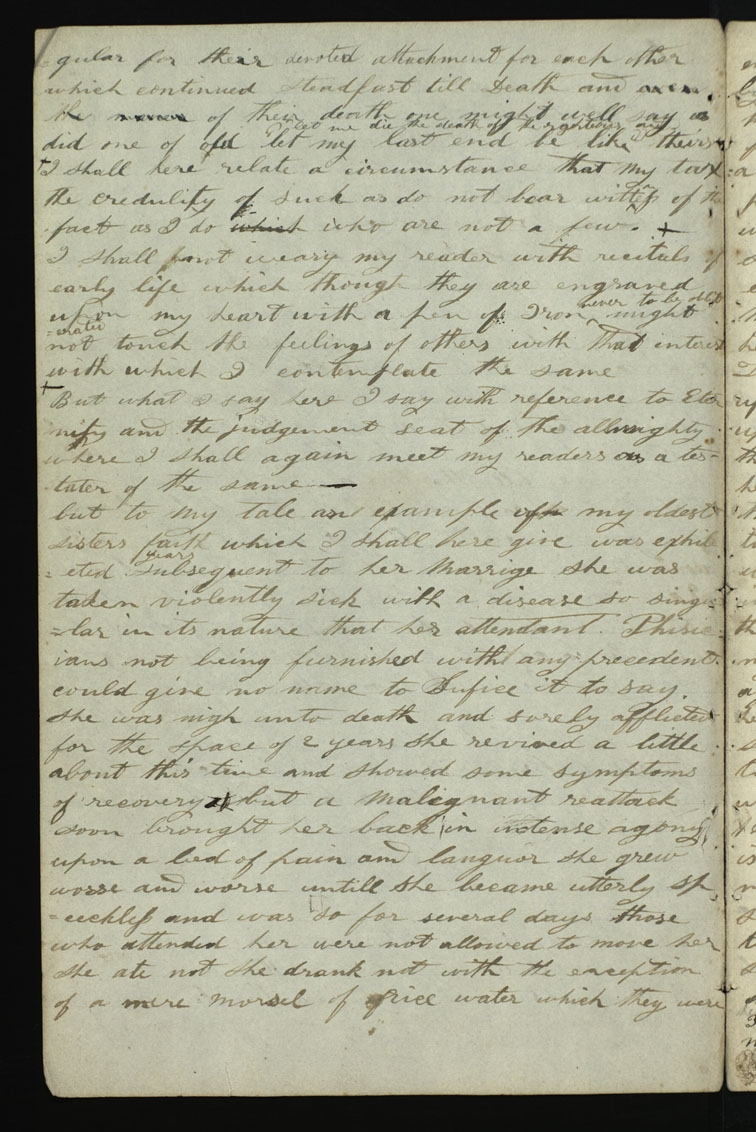 =gular for their devoted attachment for each other
which continued steadfast till Death and
the of their death one might well say as
"let me die the death of the righteous and
did one of old let my last end be like theirs"
+I shall here relate a circumstance that my tax
the credulity of such as do not bear witness of the
fact as I do which who are not a few. +
I shall not weary my reader with recitals of
early life which though they are engraved
upon my heart with a pen of Iron never to be oblit
=erated might
not touch the feelings of others with that interest
with which I contemplate the same
+
But what I say here I say with reference to Eter
nity and the judgement seat of the allmighty
where I shall again meet my readers as a tes-
tater of the same —
but to my tale an example of my oldest
sisters faith which I shall here give was exhib
=eted years subsequent to her Marrige she was
taken violently sick with a disease so singu
=lar in its nature that her attendant Phisic
ians not being furnished with any precedent
could give no name to Sufice it to say.
she was nigh unto death and sorely afflicted
for the space of 2 years she revived a little
about this time and showed some symptoms
of recovery but a Malignant reattack
soon brought her back in intense agony
upon a bed of pain and languor she grew
worse and worse untill she became utterly sp
=eechless and was so for several days those
who attended her were not allowed to move her
she ate not she drank not with the exception
of a mere morsel of rice water which they were